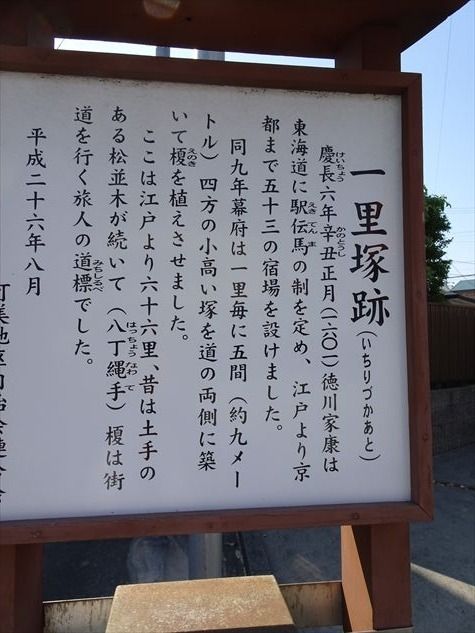 一里塚跡(いちりづかあと)
慶長六年辛丑正月(一六〇一)徳川家康は
東海道に駅伝馬の制を定め、江戸より京
都まで五十三の宿場を設けました。
同九年幕府は一里毎に五間(約九メー
トル)四方の小高い塚を道の両側に築
いて榎を植えさせました。
ここは江戸より六十六里、昔は土手の
ある松並木が続いて(八丁縄手)榎は街
道を行く旅人の道標でした。
平成二十六年八月